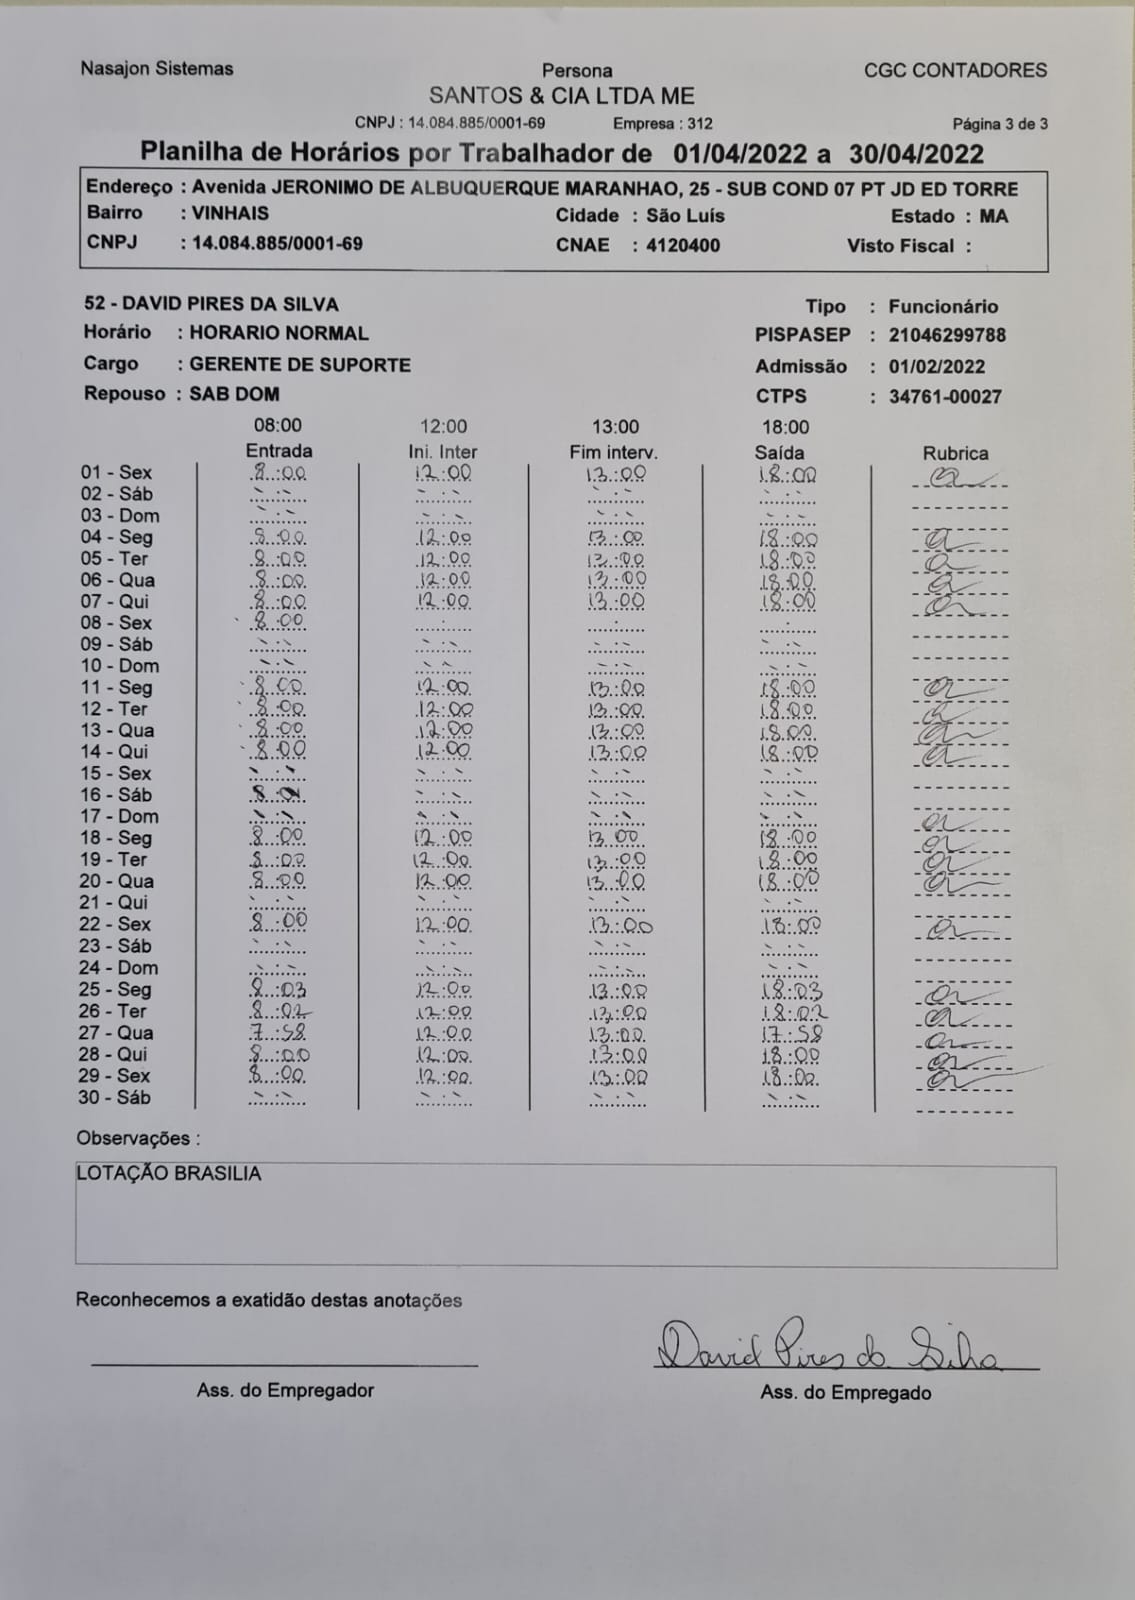 Nasajon Sistemas Persona CGC CONTADORES
SANTOS & CIA LTDA ME
CNPJ : 14.084.885/0001-69 Empresa : 312 Página 3 de 3
Planilha de Horários por Trabalhador de 01/04/2022 a 30/04/2022
Endereço : Avenida JERONIMO DE ALBUQUERQUE MARANHAO, 25 - SUB COND 07 PT JD ED TORRE
Bairro : VINHAIS Cidade : São Luís Estado : MA
CNPJ : 14.084.885/0001-69 CNAE : 4120400 Visto Fiscal :
52 - DAVID PIRES DA SILVA Tipo : Funcionário
Horário : HORARIO NORMAL PISPASEP : 21046299788
Cargo : GERENTE DE SUPORTE Admissão : 01/02/2022
Repouso : SAB DOM CTPS : 34761-00027
08:00 12:00 13:00 18:00
Entrada Ini. Inter Fim interv. Saída Rubrica
01 - Sex 8:00 12:00 13:00 18:00
02 - Sáb
03 - Dom
04 - Seg 8:00 12:00 13:00 18:00
05 - Ter 8:00 12:00 13:00 18:00
06 - Qua 8:00 12:00 13:00 18:00
07 - Qui 8:00 12:00 13:00 18:00
08 - Sex 8:00
09 - Sáb
10 - Dom
11 - Seg 8:00 12:00 13:00 18:00
12 - Ter 8:00 12:00 13:00 18:00
13 - Qua 8:00 12:00 13:00 18:00
14 - Qui 8:00 12:00 13:00 18:00
15 - Sex
16 - Sáb
17 - Dom
18 - Seg 8:00 12:00 13:00 18:00
19 - Ter 8:00 12:00 13:00 18:00
20 - Qua 8:00 12:00 13:00 18:00
21 - Qui
22 - Sex 8:00 12:00 13:00 18:00
23 - Sáb
24 - Dom
25 - Seg 8:03 12:00 13:00 18:03
26 - Ter 8:02 12:00 13:00 18:02
27 - Qua 7:58 12:00 13:00 17:58
28 - Qui 8:00 12:00 13:00 18:00
29 - Sex 8:00 12:00 13:00 18:00
30 - Sáb
Observações :
LOTAÇÃO BRASILIA
Reconhecemos a exatidão destas anotações
David Pires da Silva
Ass. do Empregador Ass. do Empregado